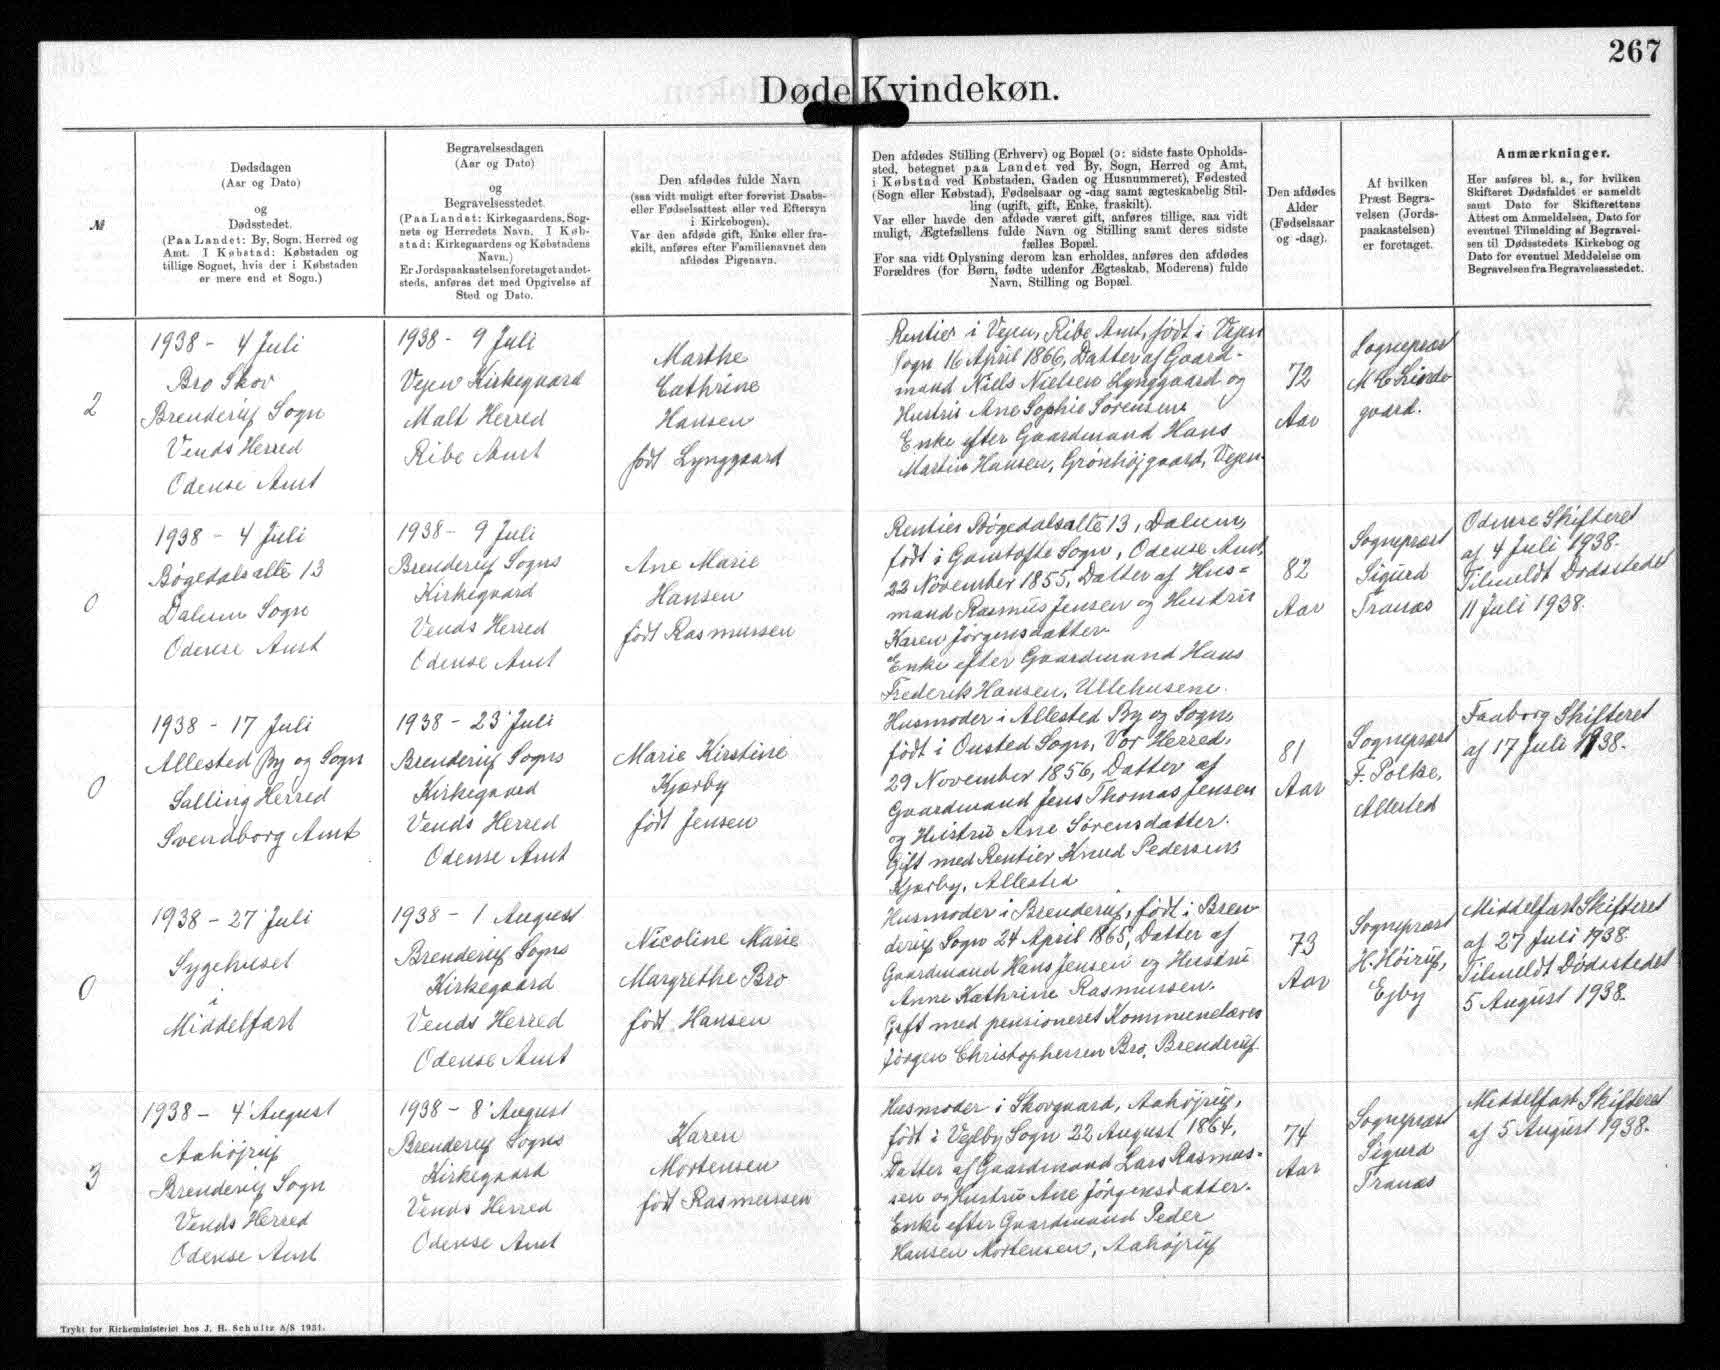 267
Døde Kvindekøn.
№
Dødsdagen
(Aar og Dato)
og
Dødsstedet.
(Paa Landet: By, Sogn, Herred og
Amt. I Købstad: Købstaden og
tillige Sognet, hvis der i Købstaden
er mere end et Sogn.)
Begravelsesdagen
(Aar og Dato)
og
Begravelsesstedet.
(Paa Landet: Kirkegaardens, Sog-
nets og Herredets Navn. I Køb-
stad: Kirkegaardens og Købstadens
Navn.)
Er Jordspaakastelsen foretaget andet-
steds, anføres det med Opgivelse af
Sted og Dato.
Den afdødes fulde Navn
(saa vidt muligt efter forevist Daabs-
eller Fødselsattest eller ved Eftersyn
i Kirkebogen).
Var den afdøde gift, Enke eller fra-
skilt, anføres efter Familienavnet den
afdødes Pigenavn.
Den afdødes Stilling (Erhverv) og Bopæl (ɔ: sidste faste Opholds-
sted, betegnet paa Landet ved By, Sogn, Herred og Amt,
i Købstad ved Købstaden, Gaden og Husnummeret), Fødested
(Sogn eller Købstad), Fødselsaar og -dag samt ægteskabelig Stil-
ling (ugift, gift, Enke, fraskilt).
Var eller havde den afdøde været gift, anføres tillige, saa vidt
muligt, Ægtefællens fulde Navn og Stilling samt deres sidste
fælles Bopæl.
For saa vidt Oplysning derom kan erholdes, anføres den afdødes
Forældres (for Børn, fødte udenfor Ægteskab, Moderens) fulde
Navn, Stilling og Bopæl.
Den afdødes
Alder
(Fødselsaar
og -dag).
Af hvilken
Præst Begra-
velsen (Jords-
paakastelsen)
er foretaget.
Anmærkninger.
Her anføres bl. a., for hvilken
Skifteret Dødsfaldet er anmeldt
samt Dato for Skifterettens
Attest om Anmeldelsen, Dato for
eventuel Tilmelding af Begravel-
sen til Dødsstedets Kirkebog og
Dato for eventuel Meddelelse om
Begravelsen fra Begravelsesstedet.
2
1938 - 4 Juli
Bro Skov
Brenderup Sogn
Vends Herred
Odense Amt
1938 - 9 Juli
Vejen Kirkegaard
Malt Herred
Ribe Amt
Marthe
Cathrine
Hansen
født Lynggaard
Rentier i Vejen, Ribe Amt, født i Vejen
Sogn 16 April 1866, Datter af Gaard-
mand Niels Nielsen Lynggaard og
Hustru Ane Sophie Sørensen.
Enke efter Gaardmand Hans
Martin Hansen, Grønhøjgaard, Vejen.
72
Aar
Sognepræst
0
1938 - 4 Juli
Bøgedalsalle 13
Dalum Sogn
Odense Amt
1938 - 9 Juli
Brenderup Sogns
Kirkegaard
Vends Herred
Odense Amt
Ane Marie
Hansen
født Rasmussen
Rentier Bøgedalsalle 13, Dalum,
født i Gamtofte Sogn, Odense Amt,
22 November 1855, Datter af Hus-
mand Rasmus Jensen og Hustru
Karen Jørgensdatter.
Enke efter Gaardmand Hans
Frederik Hansen, Ullehusene.
82
Aar
Sognepræst
Sigurd
Tranæs
Odense Skifteret
af 4 Juli 1938.
Tilmeldt Dødsstedet
11 Juli 1938.
0
1938 - 17 Juli
Allested By og Sogn
Salling Herred
Svendborg Amt
1938 - 23 Juli
Brenderup Sogns
Kirkegaard
Vends Herred
Odense Amt
Marie Kirstine
Kjærby
født Jensen
Husmoder i Allested By og Sogn,
født i Ousted Sogn, Vor Herred,
29 November 1856, Datter af
Gaardmand Jens Thomas Jensen
og Hustru Ane Sørensdatter.
Gift med Rentier Knud Pedersen
Kjærby, Allested
81
Aar
Sognepræst
F. Polke,
Allested
Faaborg Skifteret
af 17 Juli 1938.
0
1938 - 27 Juli
Sygehuset
i
Middelfart
1938 - 1 August
Brenderup Sogns
Kirkegaard
Vends Herred
Odense Amt
Nicoline Marie
Margrethe Bro
født Hansen
Husmoder i Brenderup, født i Bren
derup Sogn 24 April 1865, Datter af
Gaardmand Hans Jensen og Hustru
Anne Kathrine Rasmussen.
Gift med pensioneret Kommunelærer
Jørgen Christophersen Bro, Brenderup
73
Aar
Sognepræst
H. Høirup,
Ejby
Middelfart Skifteret
af 27 Juli 1938.
Tilmeldt Dødsstedet
5 August 1938.
3
1938 - 4 August
Aahøjrup
Brenderup Sogn
Vends Herred
Odense Amt
1938 - 8 August
Brenderup Sogns
Kirkegaard
Vends Herred
Odense Amt
Karen
Mortensen
født Rasmussen
Husmoder i Skovgaard, Aahøjrup,
født i Vejlby Sogn 22 August 1864,
Datter af Gaardmand Lars Rasmus-
sen og Hustru Ane Jørgensdatter.
Enke efter Gaardmand Peder
Hansen Mortensen, Aahøjrup
74
Aar
Sognepræst
Sigurd
Tranæs
Middelfart Skifteret
af 5 August 1938.
Trykt for Kirkeministeriet hos J. H. Schultz A/S 1931.